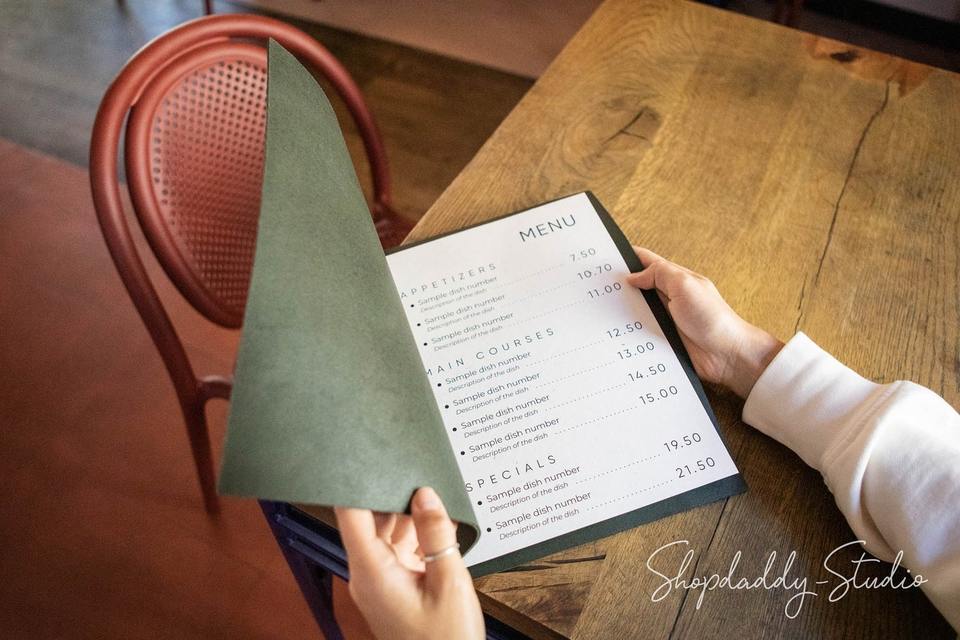 MENU
APPETIZERS
Sample dish number 7.50
Description of the dish
Sample dish number 10.70
Description of the dish
Sample dish number 11.00
Description of the dish
MAIN COURSES
Sample dish number 12.50
Description of the dish
Sample dish number 13.00
Description of the dish
Sample dish number 14.50
Description of the dish
Sample dish number 15.00
Description of the dish
SPECIALS
Sample dish number 19.50
Description of the dish
Sample dish number 21.50
Description of the dish
Shopdaddy-Studio